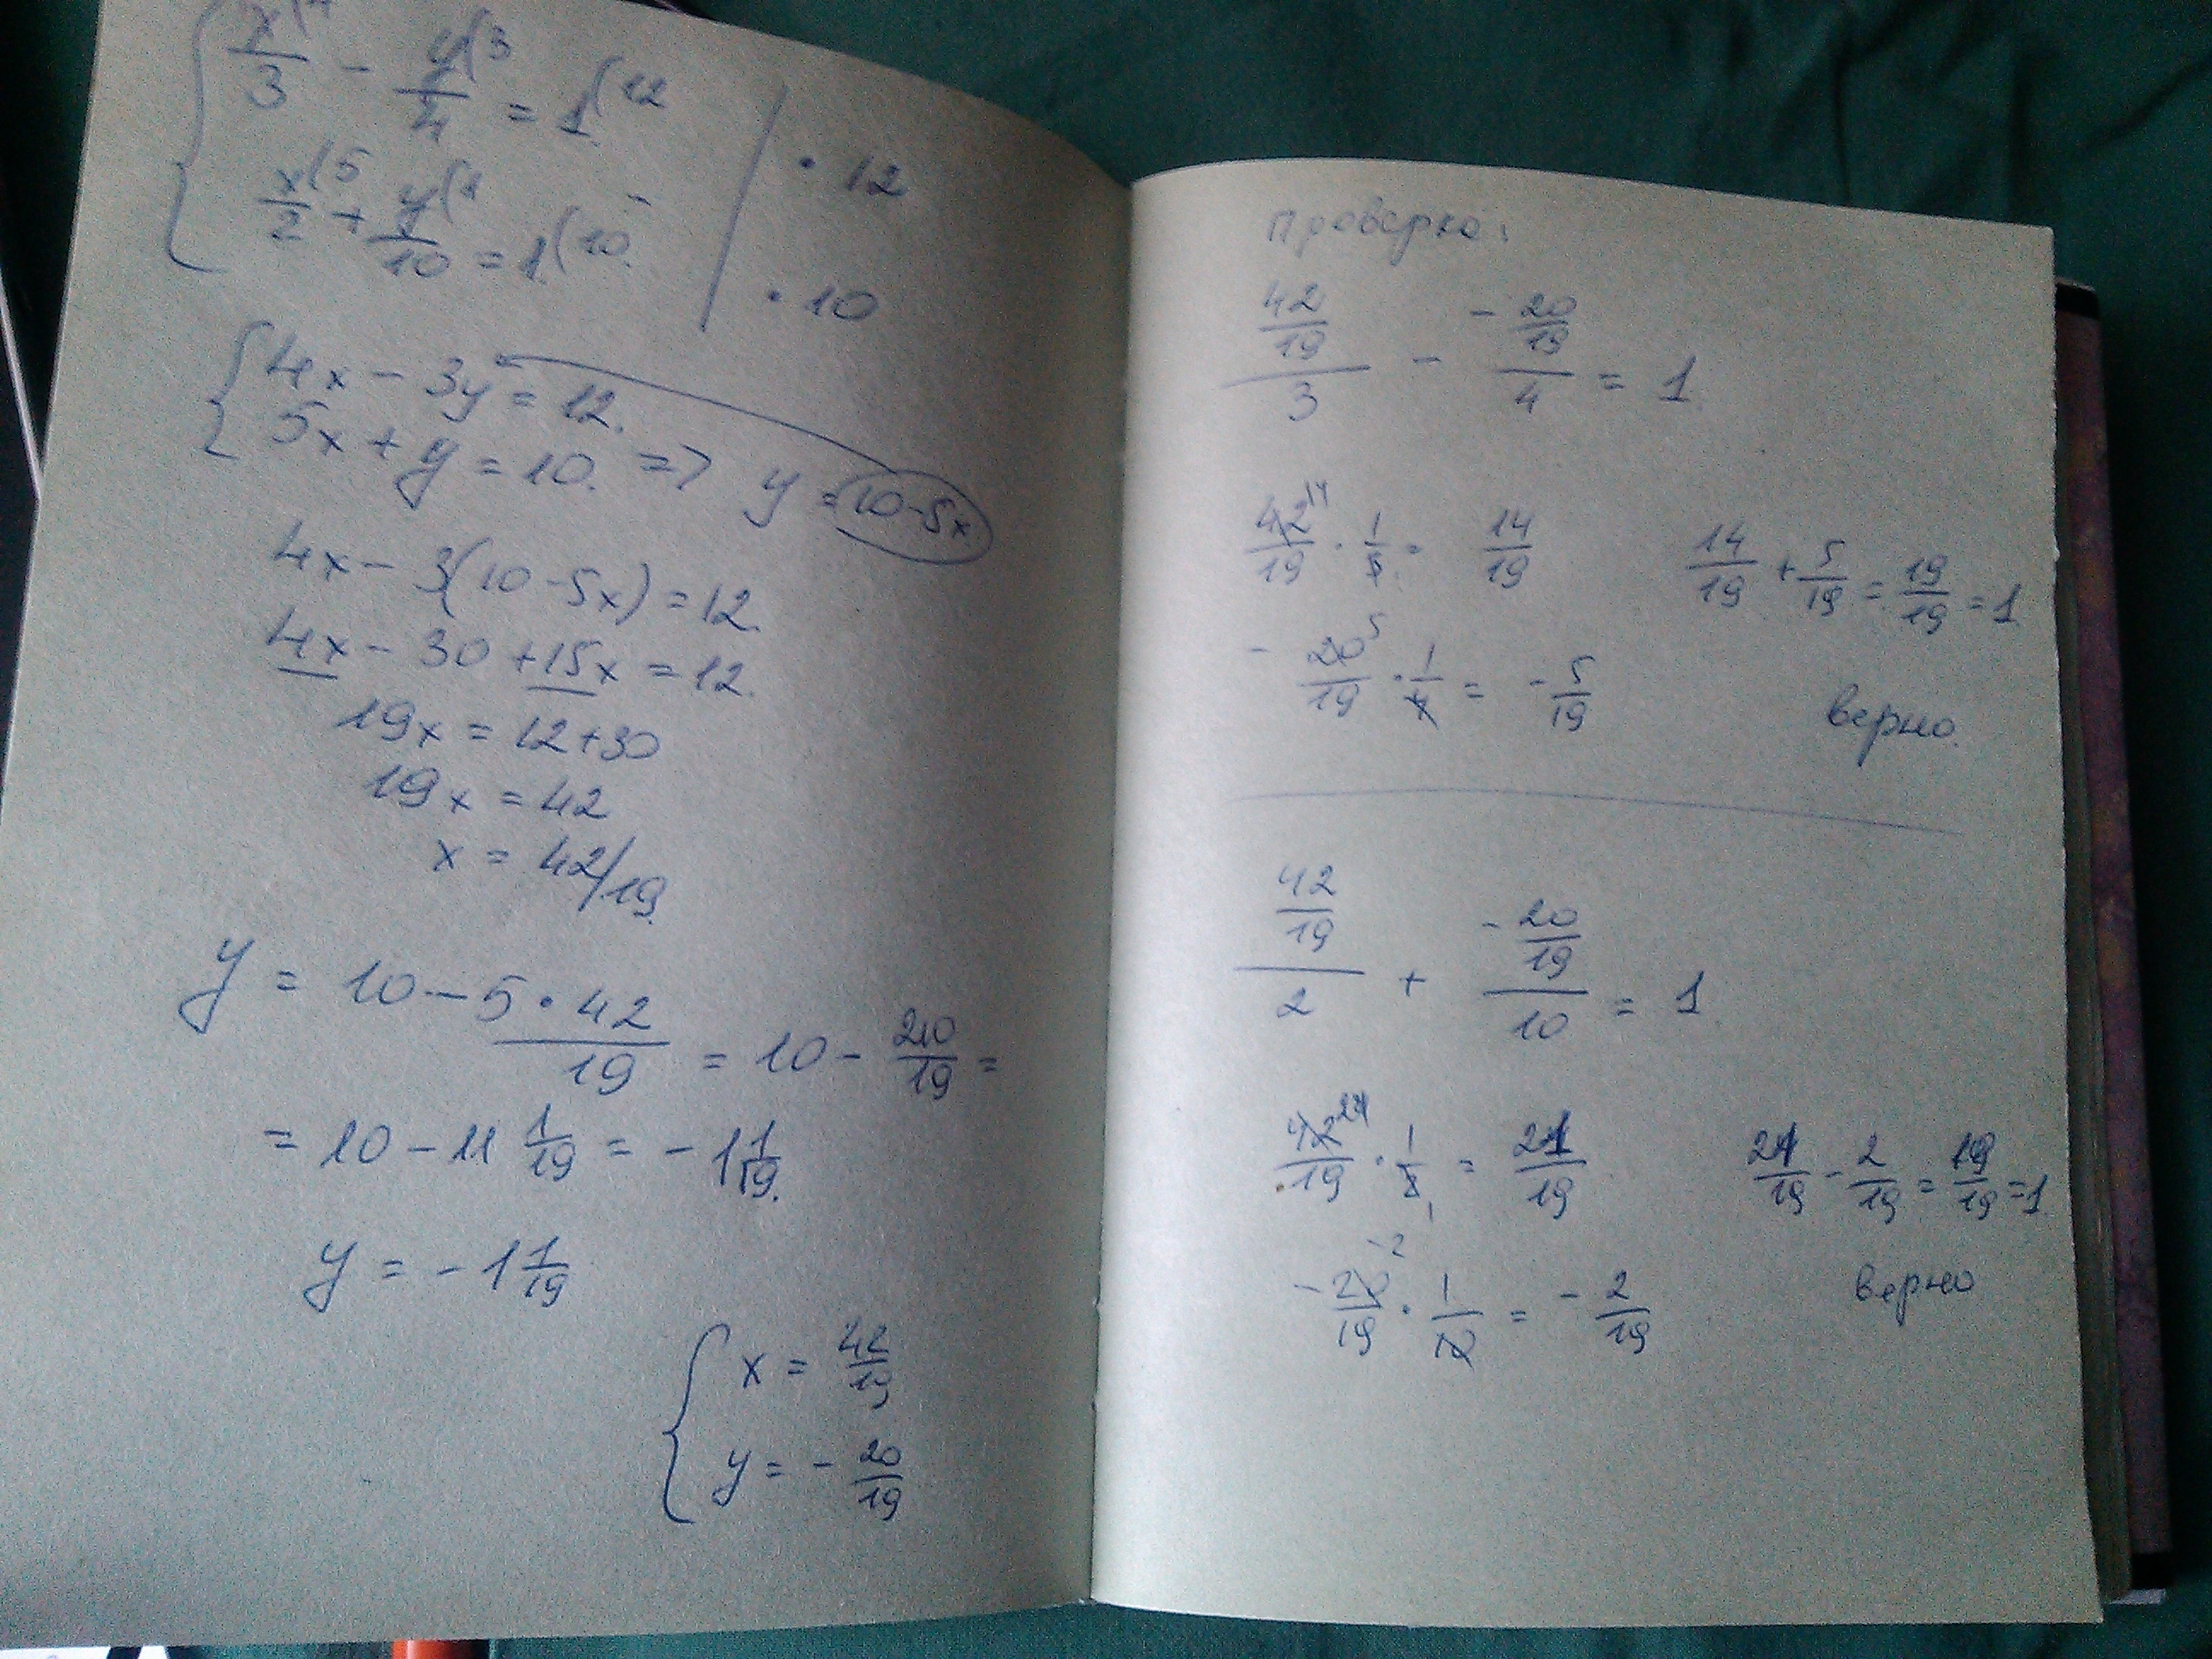 x(4/3 - y(3/4 = 1(12 | · 12
x(5/2 + y(1/10 = 1(10 | · 10
4x - 3y = 12.
5x + y = 10. => y = 10-5x
4x - 3(10-5x) = 12.
4x - 30 + 15x = 12.
19x = 12+30
19x = 42
x = 42/19.
y = 10 - 5 · 42/19 = 10 - 210/19 =
= 10 - 11 1/19 = - 1 1/19.
y = - 1 1/19
x = 42/19
y = - 20/19
Проверка:
42/19/3 - -20/19/4 = 1
42 14/19 · 1/3 = 14/19
14/19 + 5/19 = 19/19 = 1
- 20 5/19 · 1/4 = - 5/19
верно.
42/19/2 + -20/19/10 = 1
42 21/19 · 1/2 1 = 21/19
21/19 - 2/19 = 19/19 = 1
- 20 -2/19 · 1/10 = - 2/19
верно